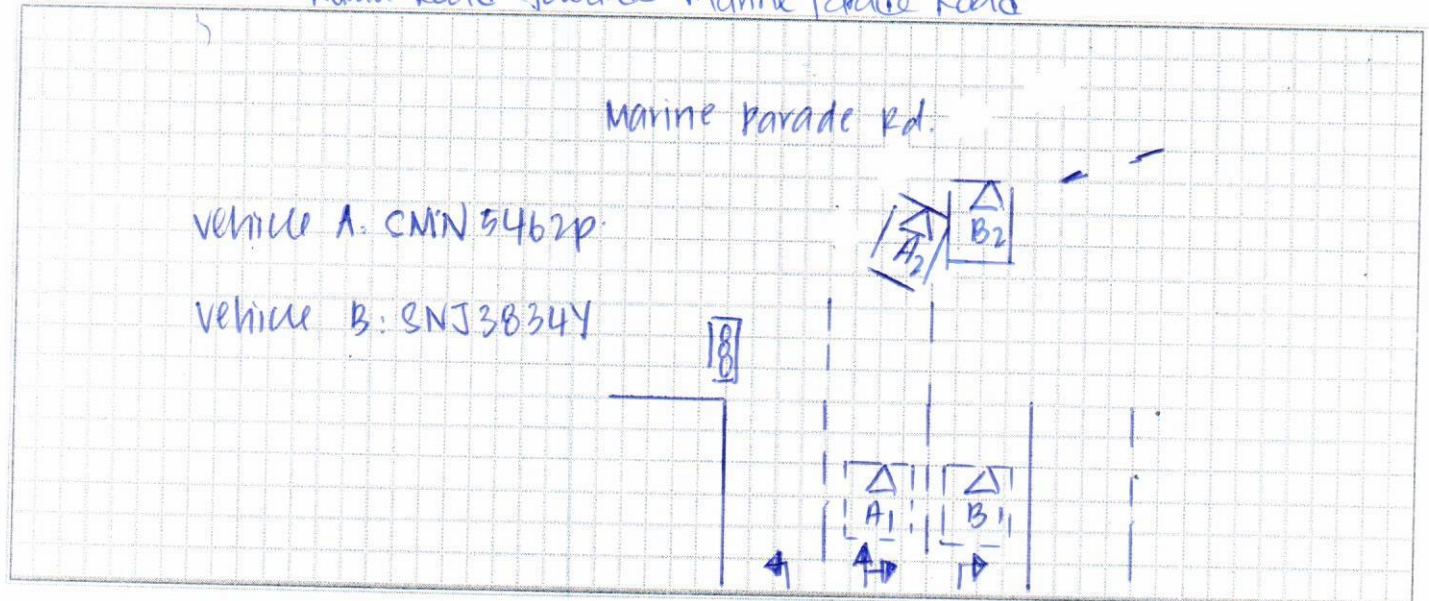 Marine Parade Road
Marine Parade Rd.
Vehicle A: SMN5462P
Vehicle B: SNJ3834Y
A2
B2
A1
B1